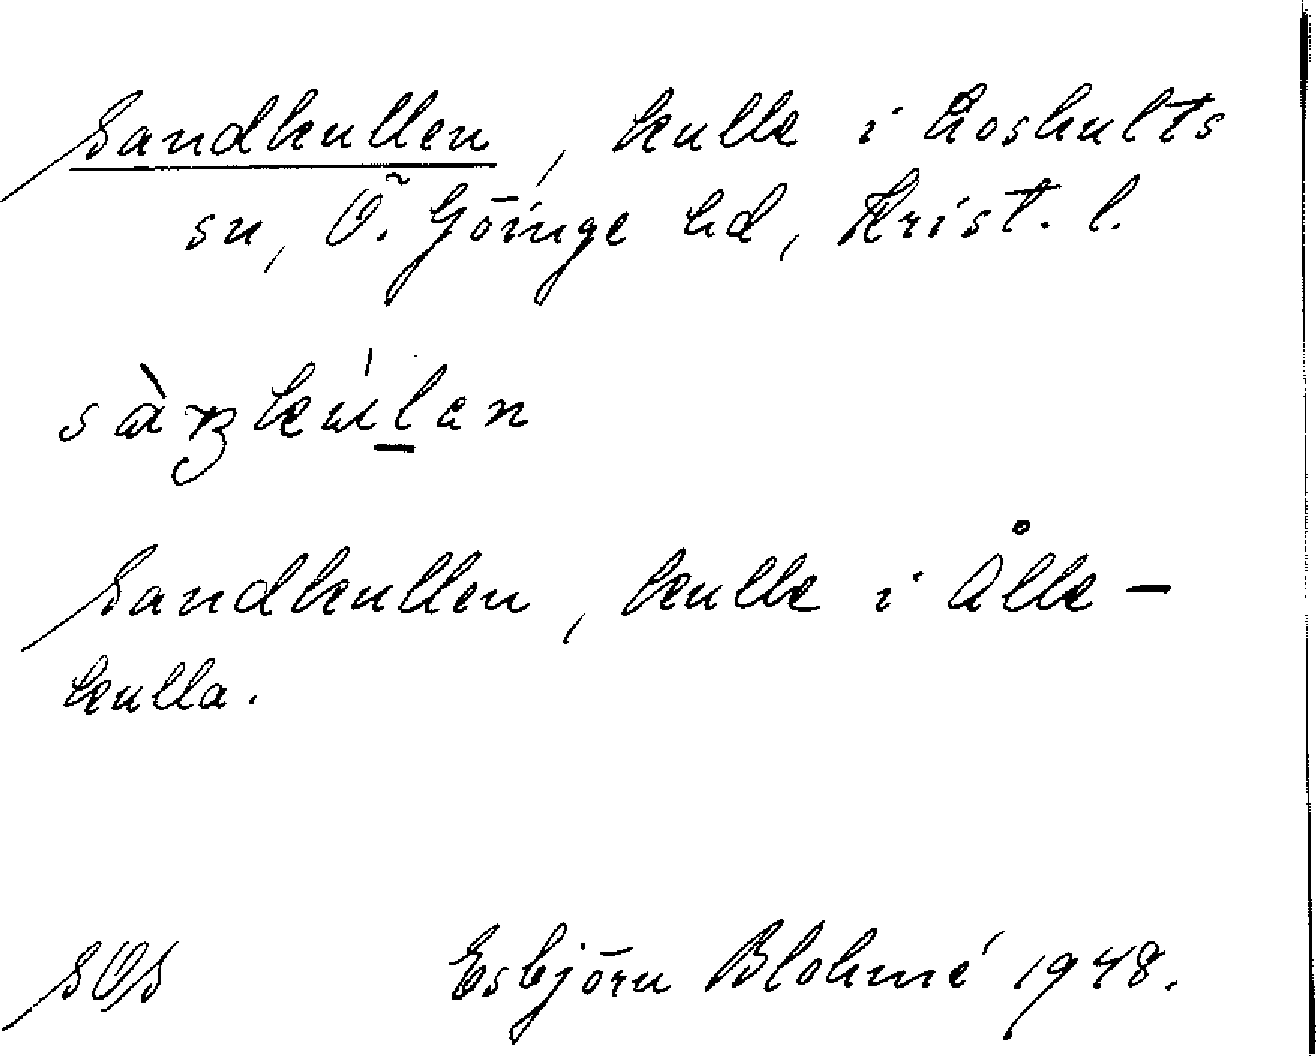 Sandkullen, kulle i Loshults
sn, Ö. Göinge hd, Krist. l.
Sandkullen, kulle i Ålle-
kulla.
SOS Esbjörn Blohmé 1948.